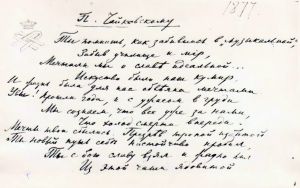 П. Чайковскому
1877
Ты помнишь, как забившись в "музыкальной"
Забыв училище и мир,
Мечтали мы о славе идеальной...
Искусство было наш кумир
И жизнь была для нас обвеяна мечтами
Увы! Прошли года, и с ужасом в груди
Мы сознаем, что все уже за нами,
Что холод смерти впереди.
Мечты твои сбылись. Презрев тропой избитой
Ты новый путь себе настойчиво пробил,
Ты с бою славу взял и жадно пил
Из этой чаши ядовитой